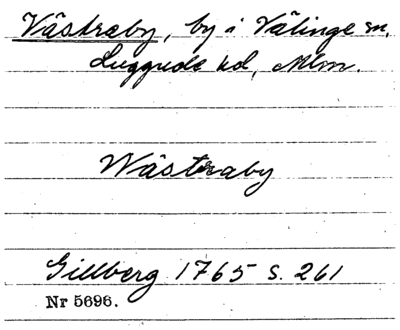 Västraby, by i Välinge sn,
Luggude hd, Mlm.
Wästraby
Gillberg 1765 s. 261
Nr 5696.